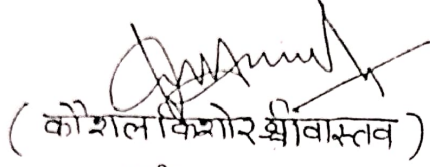 ( कौशल किशोर श्रीवास्तव )